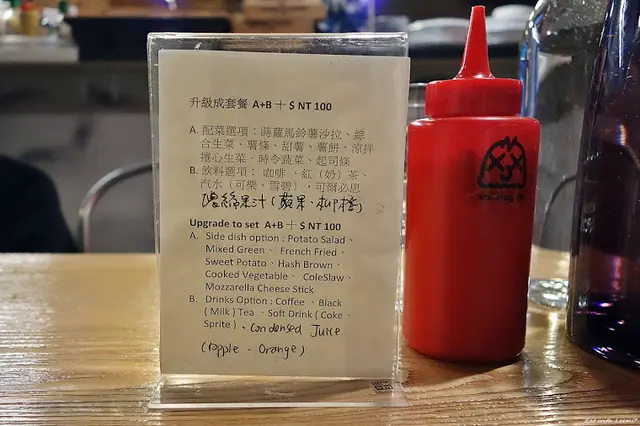 升級成套餐 A+B ＋ $ NT 100
A. 配菜選項：蒔蘿馬鈴薯沙拉、綜
合生菜、薯條、甜薯、薯餅、涼拌
捲心生菜、時令蔬菜、起司條
B. 飲料選項： 咖啡 、紅（奶）茶、
汽水（可樂、雪碧）、可爾必思
濃縮果汁(蘋果、柳橙)
Upgrade to set A+B ＋ $ NT 100
A. Side dish option : Potato Salad、
Mixed Green、 French Fried、
Sweet Potato、Hash Brown、
Cooked Vegetable、ColeSlaw、
Mozzarella Cheese Stick
B. Drinks Option : Coffee 、Black
( Milk ) Tea 、Soft Drink ( Coke、
Sprite )、Condensed Juice
(Apple、Orange)